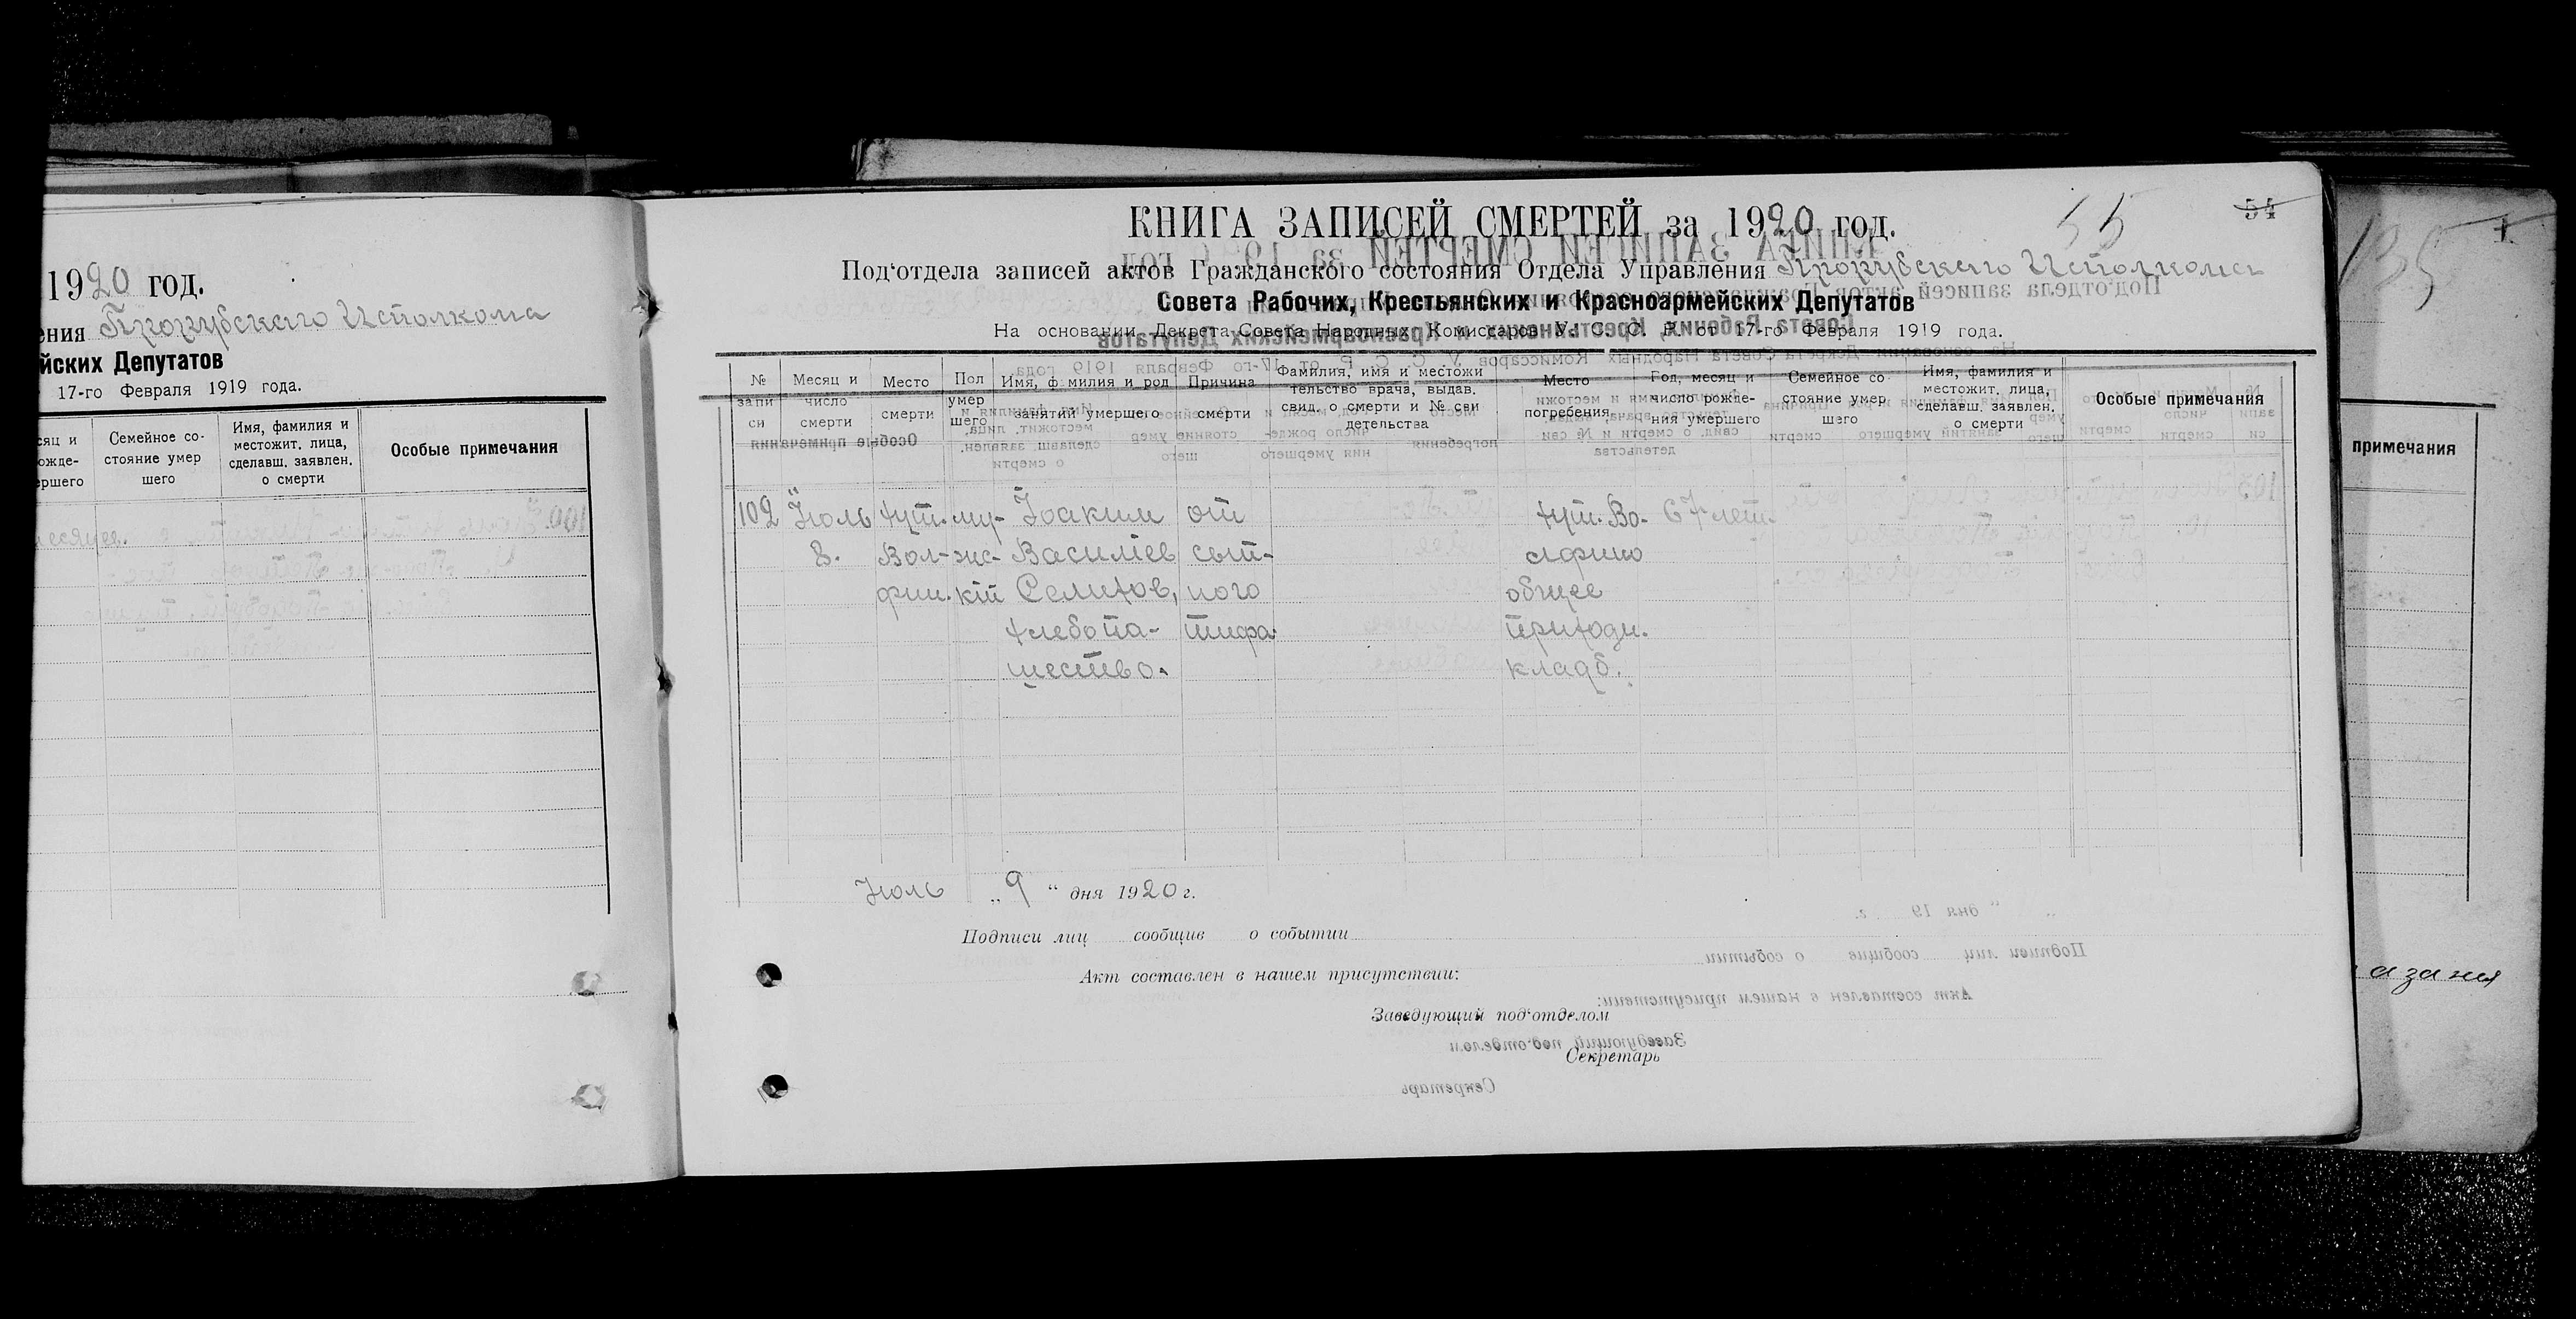 1920 год.
ения Прокубского Исполкома
йских Депутатов
17-го Февраля 1919 года.
сяц и
ожде-
ершего
Семейное со-
стояние умер
шего
Имя, фамилия и
местожит. лица,
сделавш. заявлен.
о смерти
Особые примечания
месяцев.
55
54
КНИГА ЗАПИСЕЙ СМЕРТЕЙ за 1920 год.
Под‘отдела записей актов Гражданского состояния Отдела Управления Прокубского Исполкома
Совета Рабочих, Крестьянских и Красноармейских Депутатов
На основании Декрета Совета Народных Комиссаров У. С. С. Р. от 17-го Февраля 1919 года.
№
запи
си
Месяц и
число
смерти
Место
смерти
Пол
умер
шего
Имя, ф милия и род
занятий умершего
Причина
смерти
Фамилия, имя и местожи
тельство врача, выдав.
свид. о смерти и № сви
детельства
Место
погребения
Год, месяц и
число рожде-
ния умершего
Семейное со
стояние умер
шего
Имя, фамилия и
местожит. лица,
сделавш. заявлен.
о смерти
Особые примечания
102 Июль хут. му- Иоаким от хут. Во- 67 лет.
8. Вол- жс- Василiев сып-
фин. кiй Селихов, ного общее
хлебопа- тифа. приходн.
шество. кладб.
Июль „ 9 “ дня 1920 г.
Подписи лиц сообщив о событии
Акт составлен в нашем присутствии:
Заведующий под‘отделом
Секретарь
135
1
примечания